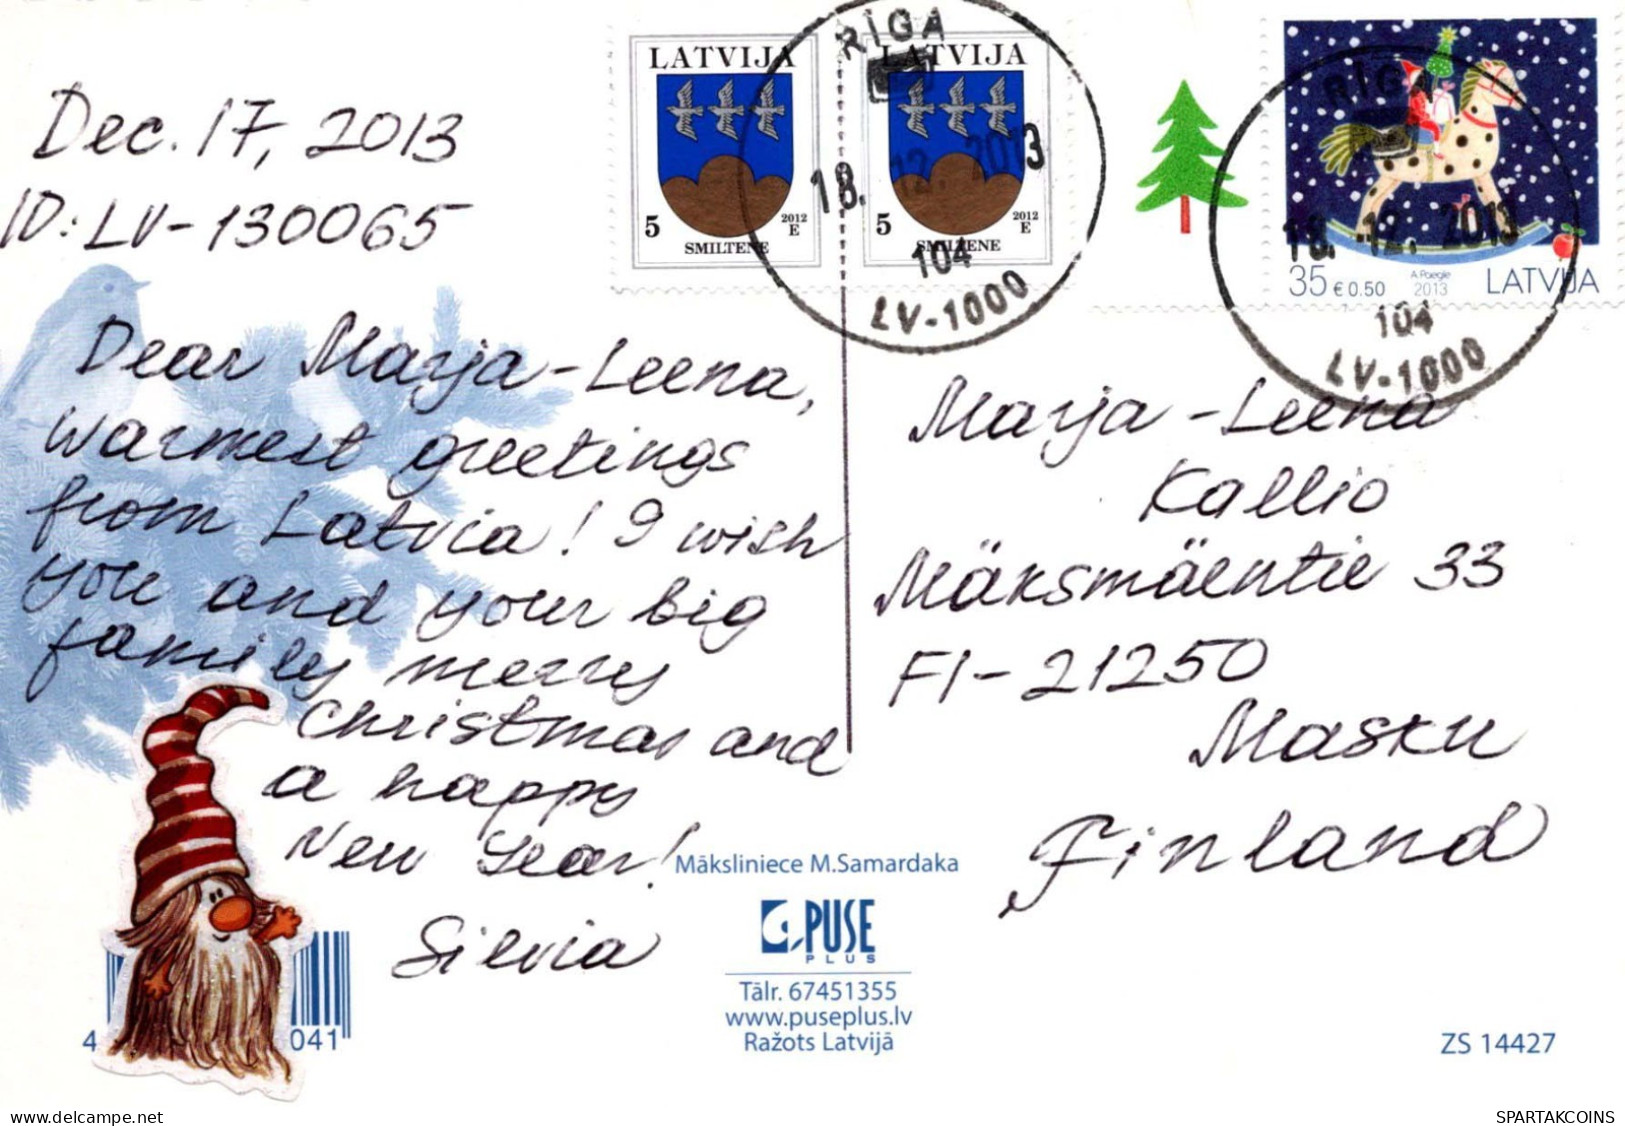 LATVIJA
5
2012
E
SMILTENE
LATVIJA
5
2012
E
SMILTENE
RĪGA
18.12.2013
104
LV-1000
RĪGA
18.12.2013
104
LV-1000
35 € 0.50
A.Paegle
2013
LATVIJA
Dec. 17, 2013
ID: LV-130065
Dear Marja-Leena,
Warmest greetings
from Latvia! I wish
you and your big
family merry
Christmas and
a happy
New Year!
Silvia
Marja-Leena
Kallio
Mäksmäentie 33
FI-21250
Masku
Finland
Māksliniece M.Samardaka
PUSE
PLUS
Tālr. 67451355
www.puseplus.lv
Ražots Latvijā
4
041
ZS 14427
delcampe.net
SPARTAKCOINS